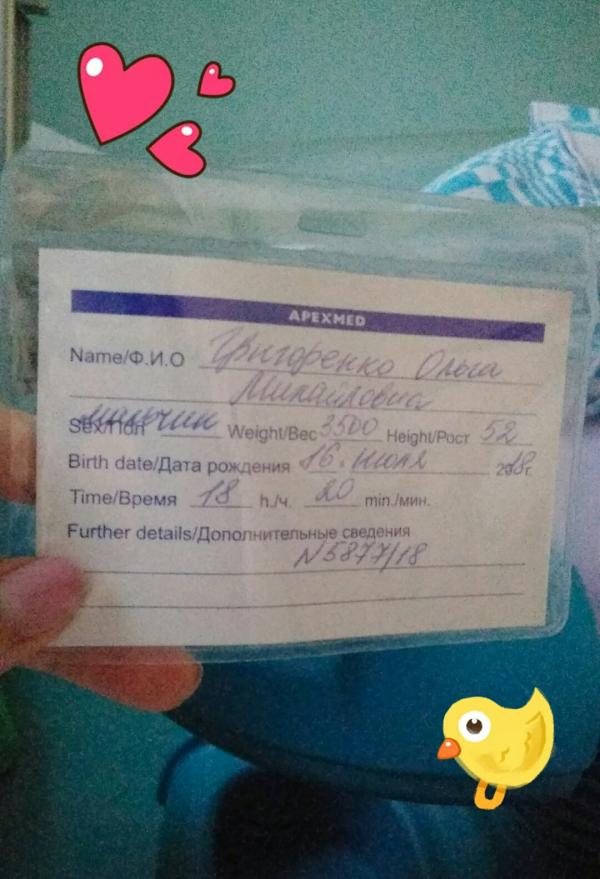 APEXMED
Name/Ф.И.О Григоренко Ольга
Михайловна
Sex/Пол мальчик Weight/Вес 3500 Height/Рост 52
Birth date/Дата рождения 16. июля 2018г.
Time/Время 18 h./ч. 20 min./мин.
Further details/Дополнительные сведения
N5877/18